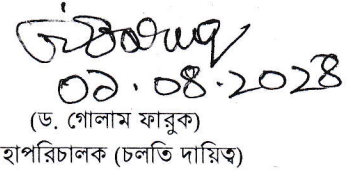 ০১.০৪.২০২৪
(ড. গোলাম ফারুক)
হাপরিচালক (চলতি দায়িত্ব)